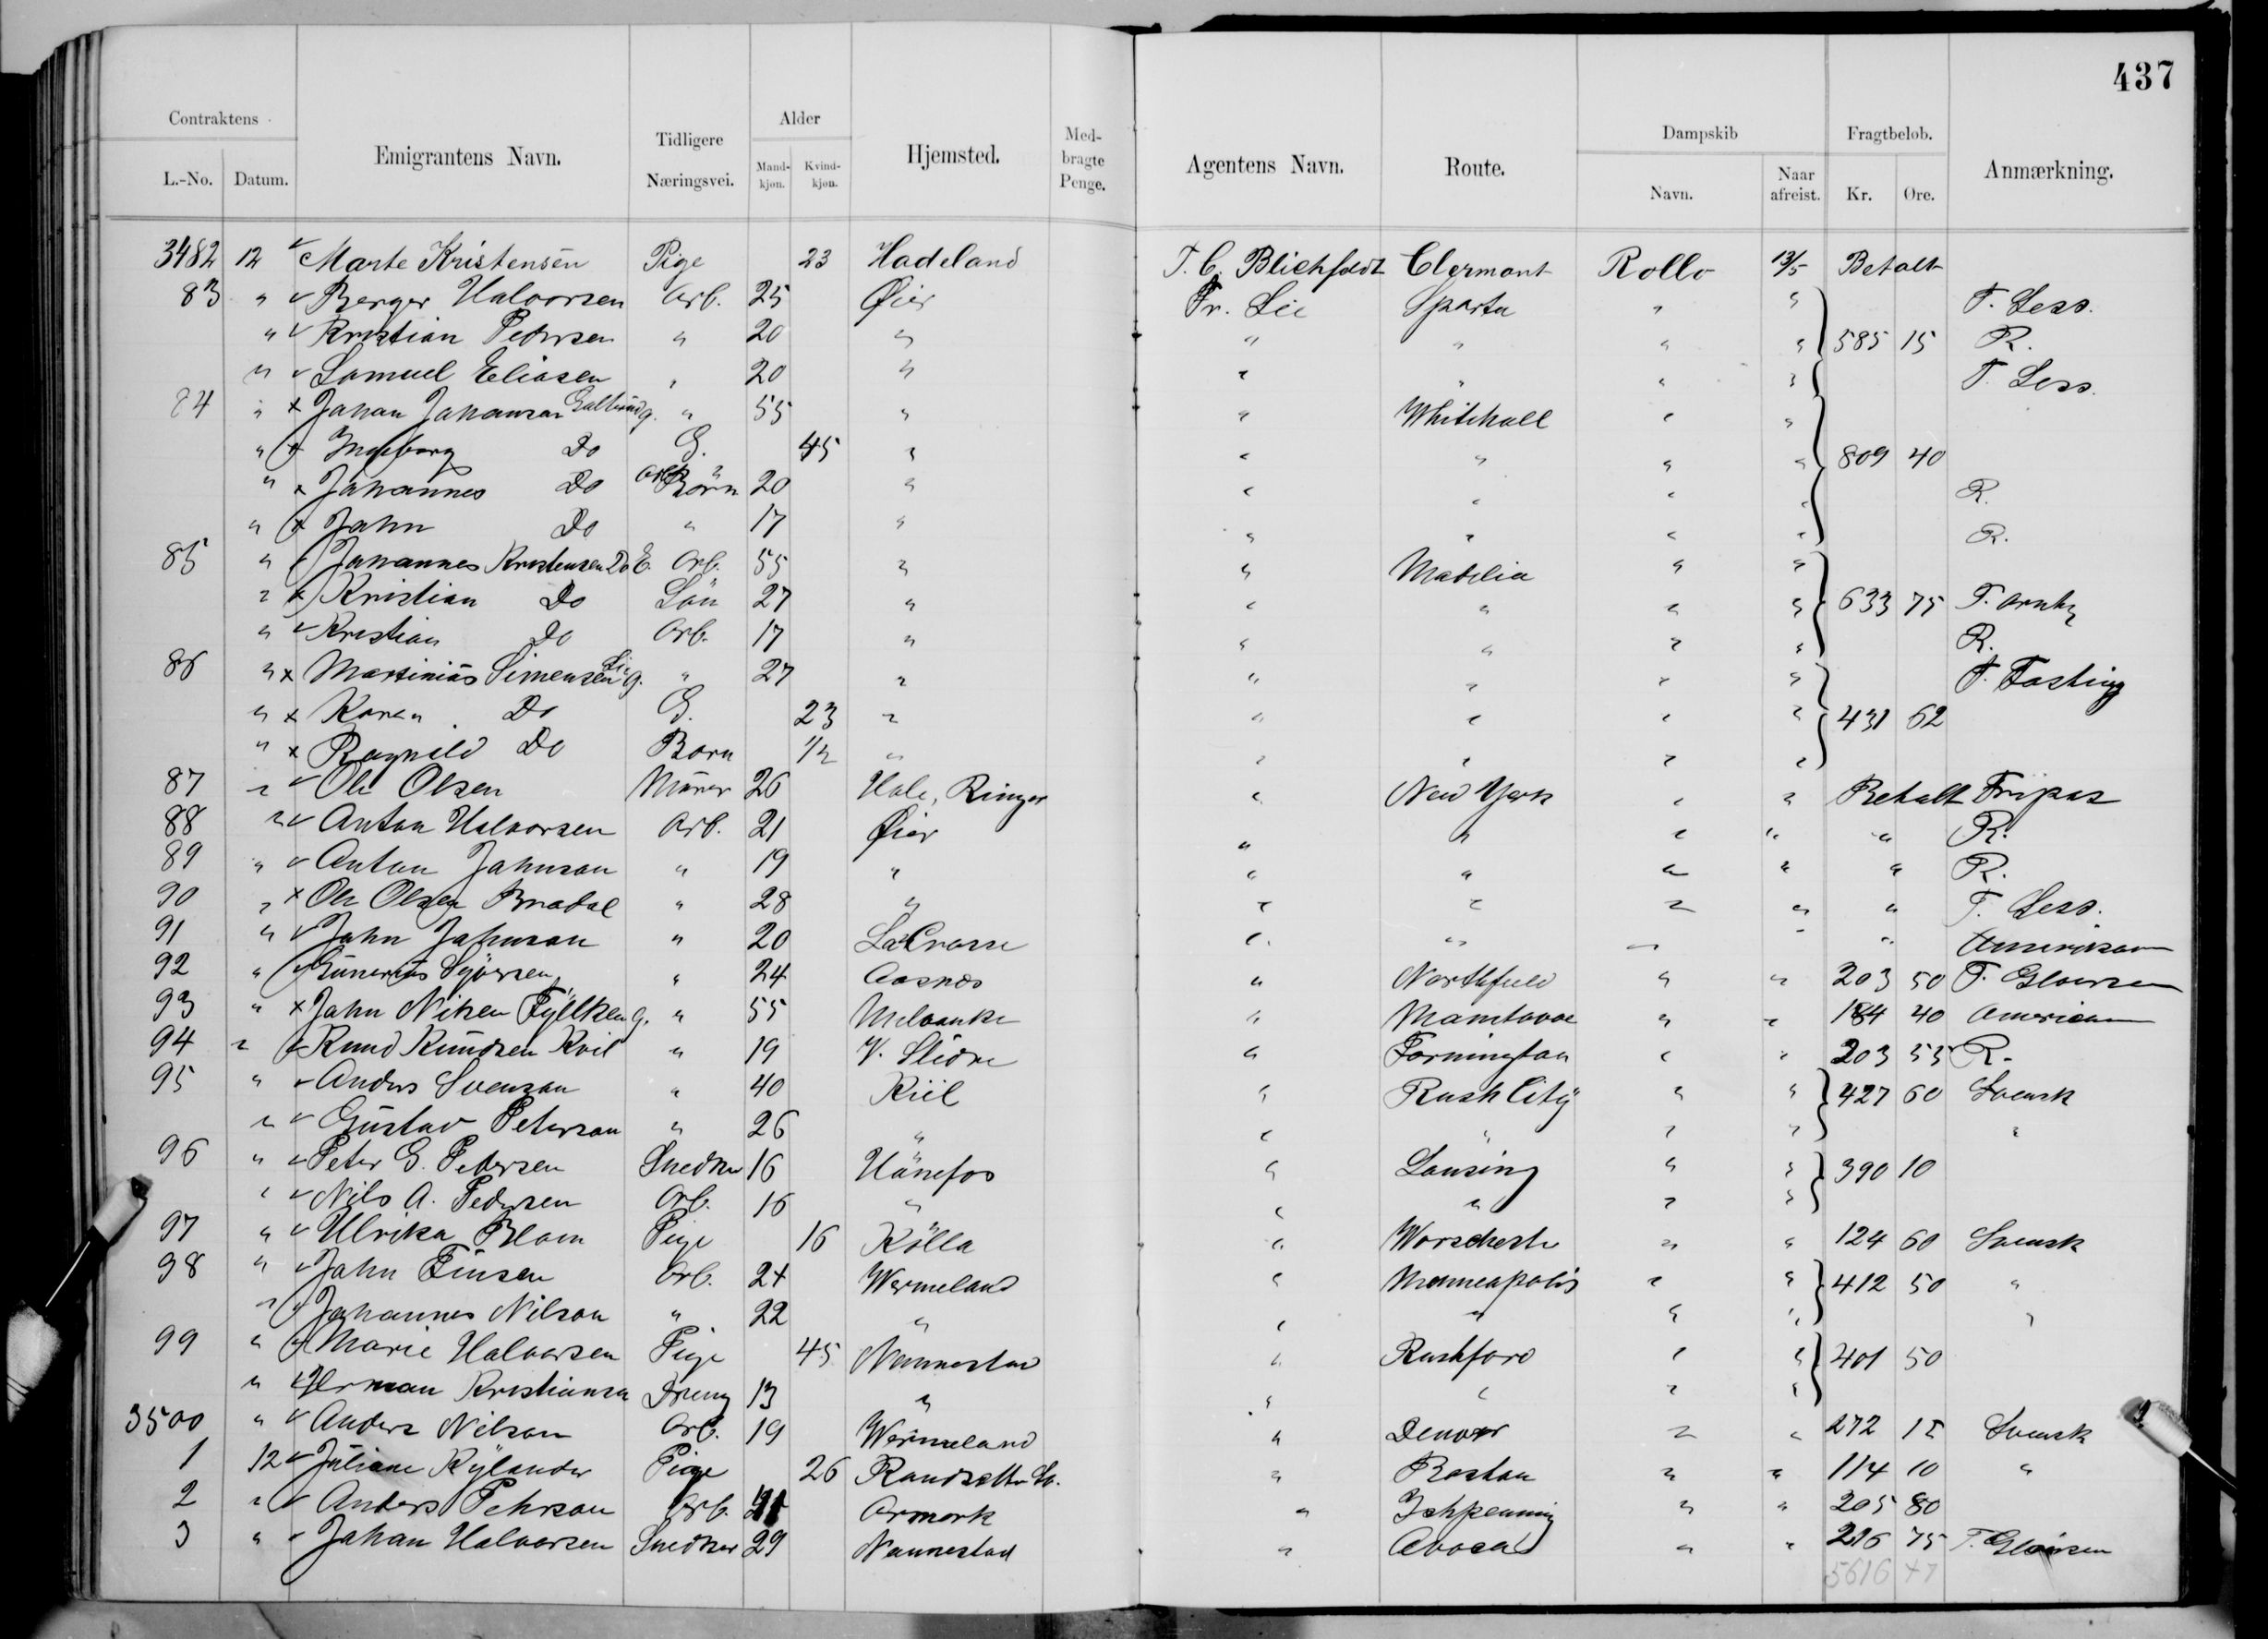 437
Contraktens Emigrantens Navn. Tidligere Næringsvei. Alder Hjemsted. Med-bragte Penge. Agentens Navn. Route. Dampskib Fragtbeløb. Anmærkning.
L.-No. Datum. Mand-kjøn. Kvind-kjøn. Navn. Naar afreist. Kr. Øre.
3482 12 Marte Kristensen Pige 23 Hadeland T. C. Blichfeldt Clermont Rollo 13/5 Betalt
83 " Berger Halvorsen Arb. 25 Øier Fr. Lie Sparta " " T. Less.
" Kristian Pedersen " 20 " " " " " 585 15 R.
" Samuel Eliasen " 20 " " " " " T. Less.
84 " x Johan Johansen g. " 55 " " Whitehall " "
" x Ingeborg Do G. 45 " " " " " 809 40
" x Johannes Do Arb Börn 20 " " " " " R.
" x John Do " 17 " " " " " R.
85 " Johannes Kristensen Do E. Arb. 55 " " Madelia " "
" Kristian Do Sön 27 " " " " " 633 75
" Kristian Do Arb. 17 " " " " " R.
86 " x Martinius Simensen Lie g. " 27 " " " " " T. Fasting
" x Karen Do G. 23 " " " " " 431 62
" x Ragnild Do Barn 1/2 " " " " "
87 " Ole Olsen Murer 26 Hole, Ringer " New York " " Betalt Fripas
88 " Anton Halvorsen Arb. 21 Øier " " " " " R.
89 " Anton Johnson " 19 " " " " " " R.
90 " x Ole Olsen " 28 " " " " " " T. Less.
91 " John Johnson " 20 La Crosse " " " " " Amerikaner
92 " Gunerius Syversen " 24 Aasnæs " Northfield " " 203 50
93 " x John Nilsen g. " 55 Milvauke " Manitovoc " " 184 40 American
94 " Knud Knudsen Kvil " 19 V. Slidre " Farmington " " 203 55 R.
95 " Anders Svenson " 40 Kiil " Rush City " " 427 60 Svensk
" Gustav Peterson " 26 " " " " " "
96 " Peter G. Pedersen Snedker 16 Hönefos " Lansing " " 390 10
" Nils A. Pedersen Arb. 16 " " " " "
97 " Ulrika Blom Pige 16 Kölla " Worschester " " 124 60 Svensk
98 " John Finsen Arb. 24 Wermeland " Minneapolis " " 412 50 "
" Johannes Nilson " 22 " " " " " "
99 " Marie Halvorsen Pige 45 Nannestad " Rushford " " 401 50
" Herman Kristiansen Dreng 13 " " " " "
3500 " Anders Nilson Arb. 19 Wermeland " Denver " " 272 15 Svensk
1 12 Juliane Rylander Pige 26 " Boston " " 114 10 "
2 " Anders Pehrson Arb. Armark " Ishpeming " " 205 80
3 " Johan Halvorsen Snedker 29 Nannestad " Avoca " " 216 75
5616 47